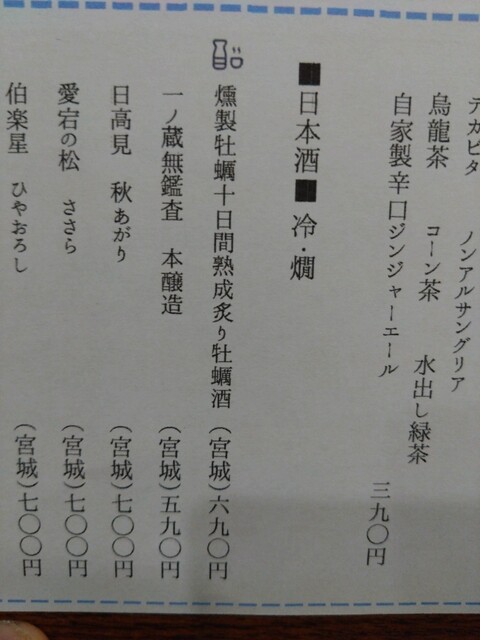 デカビタ　ノンアルサングリア
烏龍茶　コーン茶　水出し緑茶
自家製辛口ジンジャーエール　三九〇円
■日本酒■　冷・燗
燻製牡蠣十日間熟成炙り牡蠣酒（宮城）六九〇円
一ノ蔵無鑑査　本醸造（宮城）五九〇円
日高見　秋あがり（宮城）七〇〇円
愛宕の松　ささら（宮城）七〇〇円
伯楽星　ひやおろし（宮城）七〇〇円